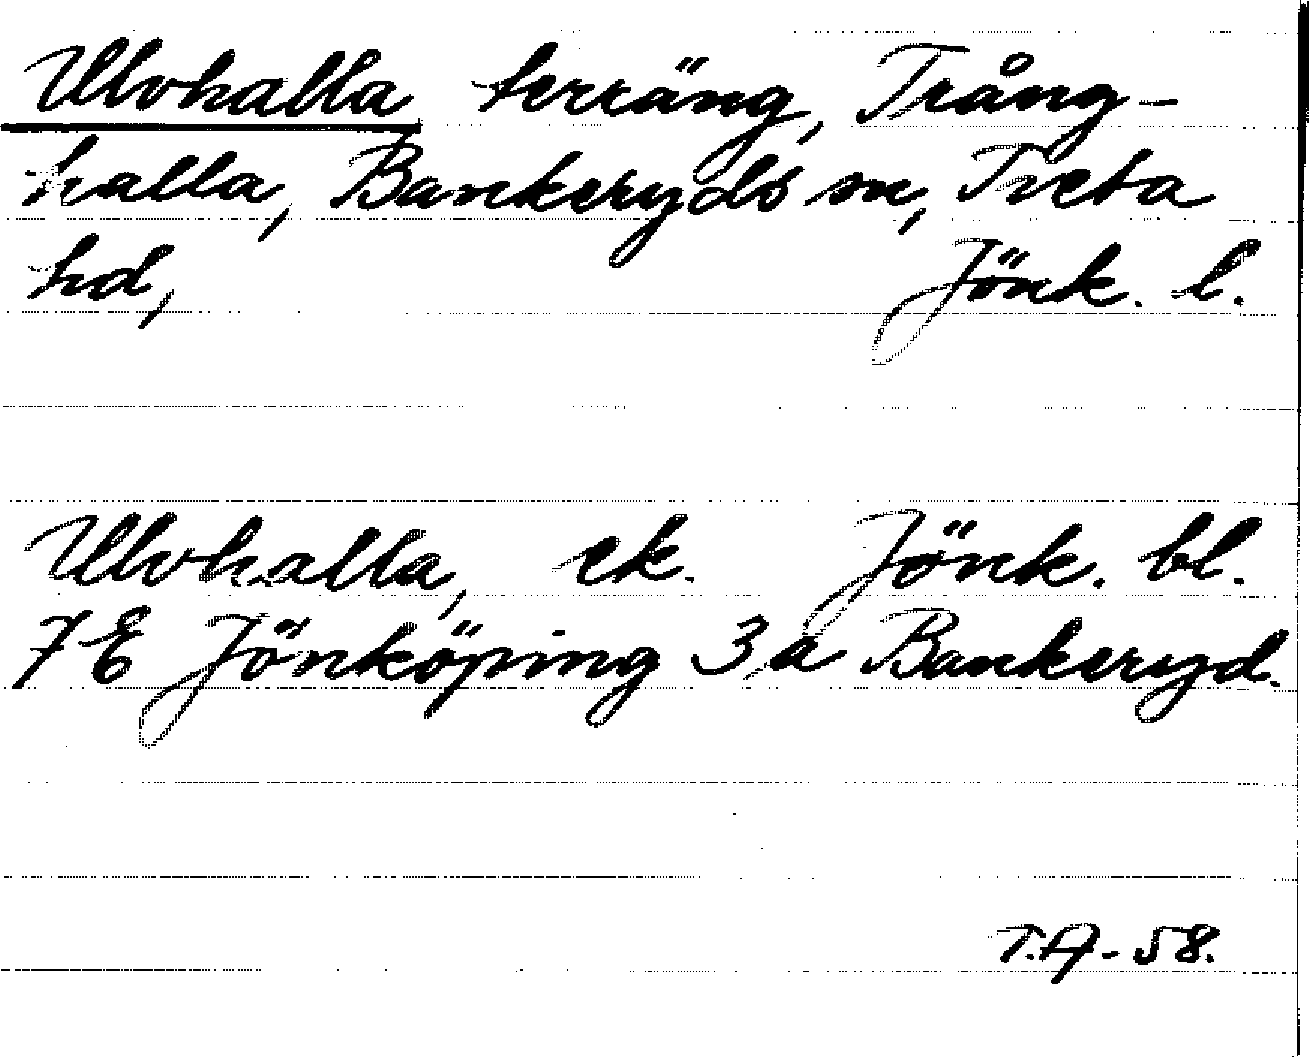 Ulvhalla terräng, Trång-
halla, Bankeryds sn, Tveta
hd, Jönk. l.
Ulvhalla, ek. Jönk. bl.
7E Jönköping 3a Bankeryd.
T.A-58.